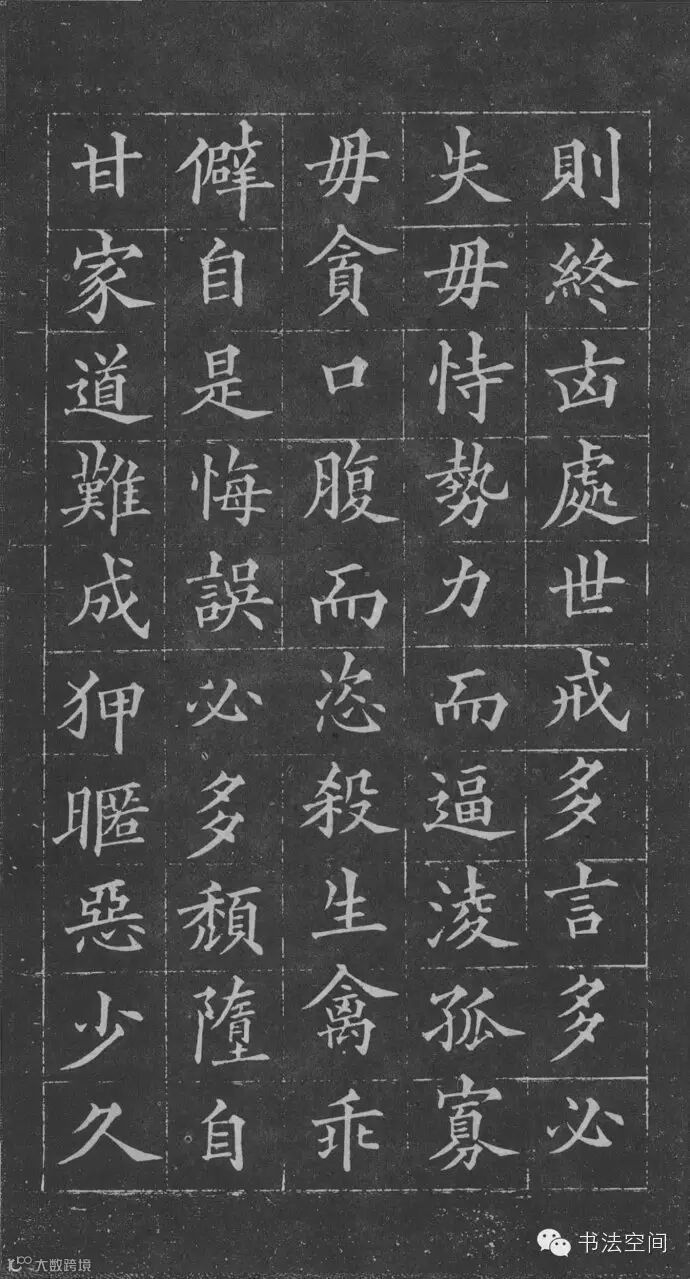 則終凶處世戒多言多必
失毋恃勢力而逼淩孤寡
毋貪口腹而恣殺生禽乖
僻自是悔誤必多頹隳自
甘家道難成狎暱惡少久
书法空间
大数跨境